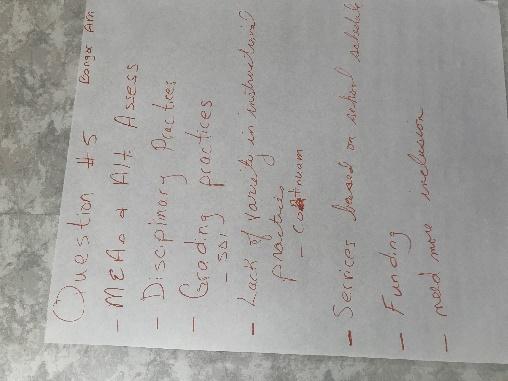 Question #5 Bangor Am
- MEAs & Alt Assess
- Disciplinary Practices
- Grading practices
- SDI
- Lack of variety in instructional
practices
- continuum
- Services based on school schedule
- Funding
- need more inclusion